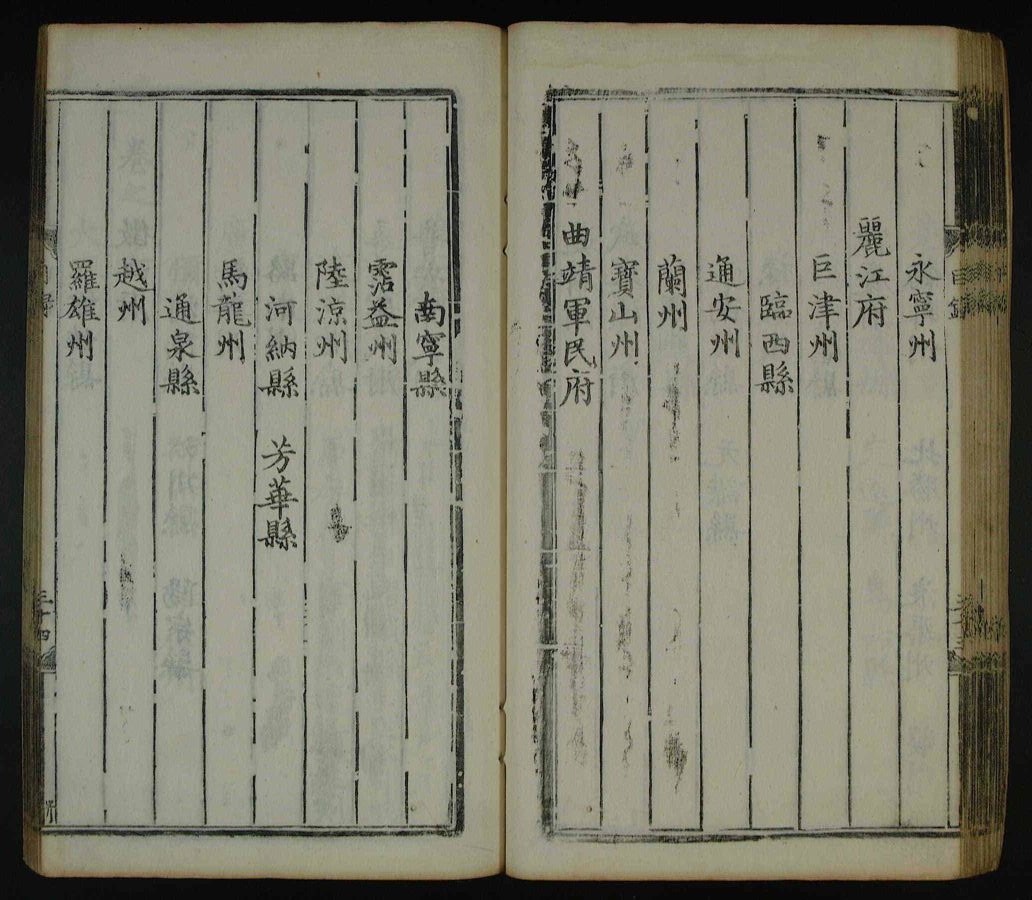 目錄
永寧州
麗江府
巨津州
臨西縣
通安州
蘭州
寶山州
曲靖軍民府
南寧縣
霑益州
陸涼州
河納縣　芳華縣
馬龍州
通泉縣
越州
羅雄州
目錄
三十四